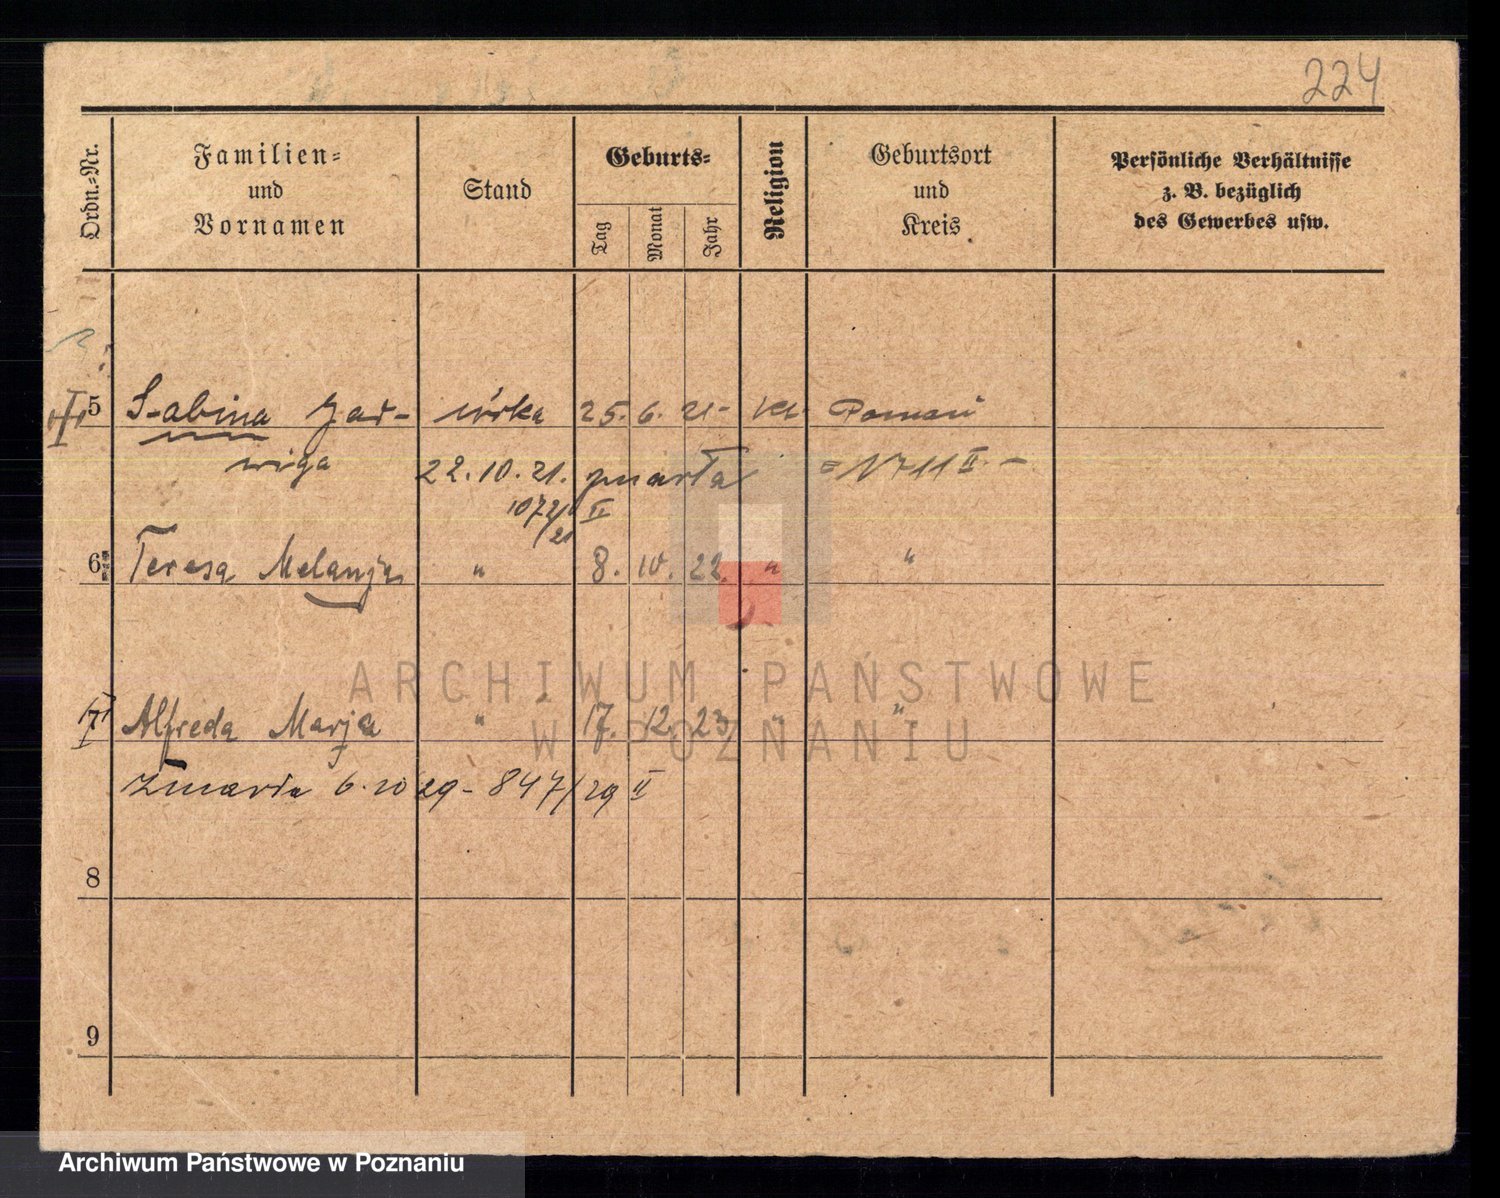 224
Ordn.-Nr.
Familien-
und
Vornamen
Stand
Geburts-
Tag
Monat
Jahr
Religion
Geburtsort
und
Kreis
Persönliche Verhältnisse
z. B. bezüglich
des Gewerbes usw.
5 Sabina Jad- córka 25. 6. 21- kt. Poznań
wiga 22. 10. 21. zmarła = N 711 II. -
1072/21 II
6 Teresa Melanja " 8. 10. 22. " "
ARCHIWUM PAŃSTWOWE
W POZNANIU
7 Alfreda Marja " 17. 12. 23 " "
zmarła 6.10 29 - 847/29 II
8
9
Archiwum Państwowe w Poznaniu